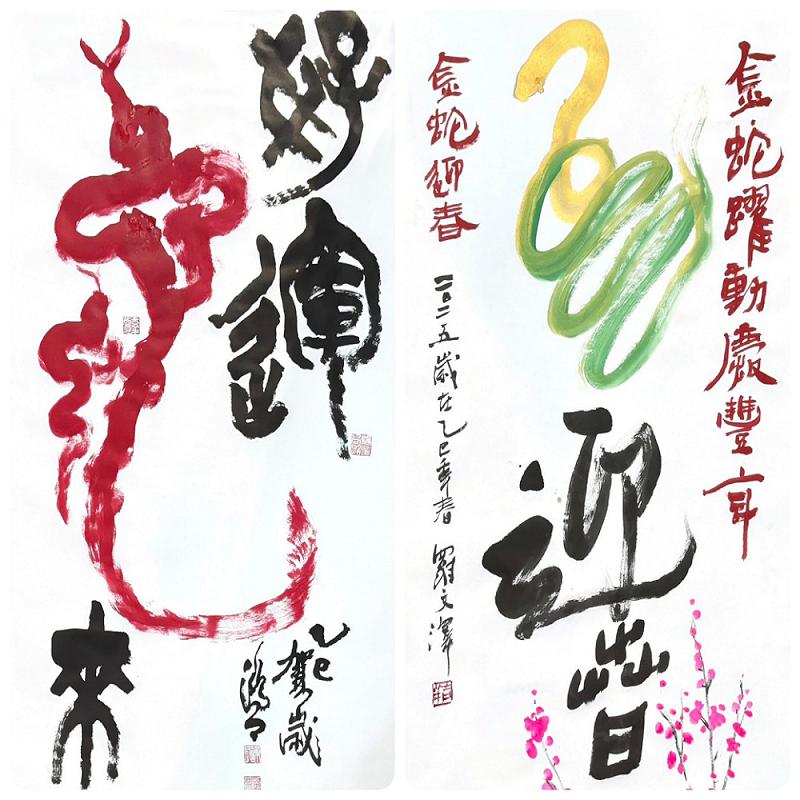 好運
來
乙巳
賀歲
金蛇躍動慶豐年
迎春
金蛇迎春
二〇二五歲在乙巳年春 羅文澤